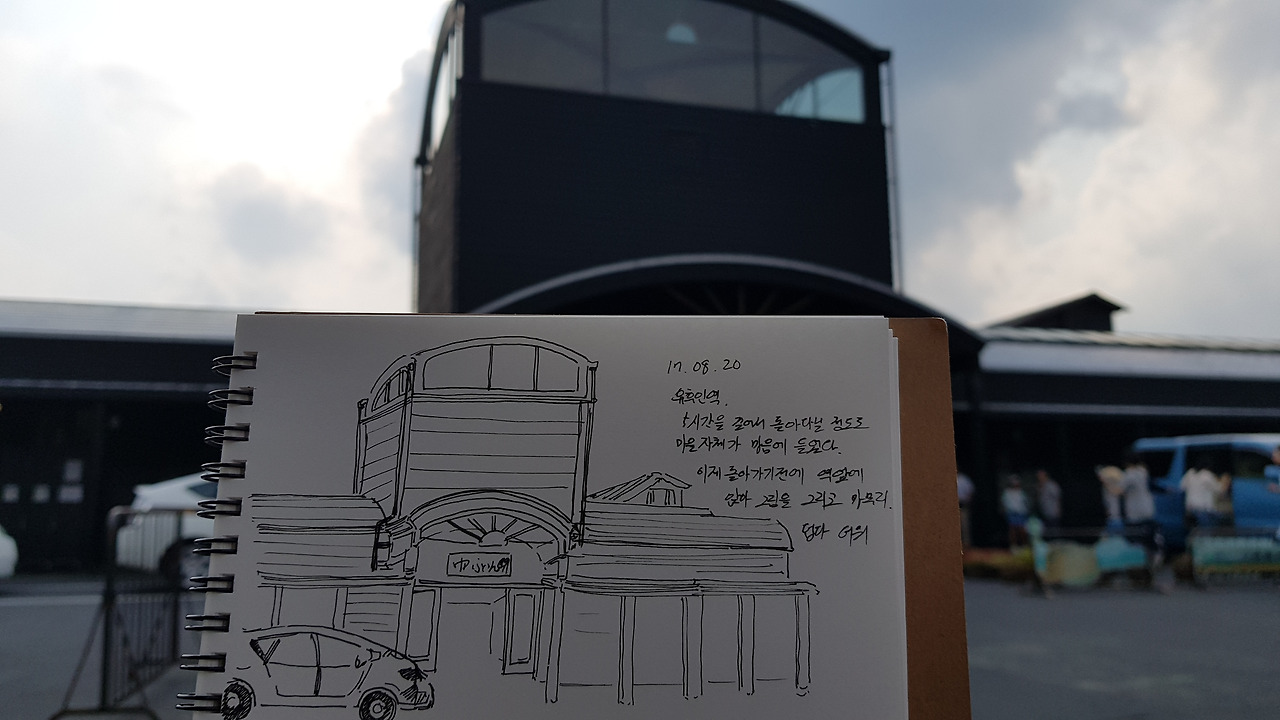 17.08.20
유후인역.
5시간을 걸어서 돌아다닐 정도로
마을 자체가 마음에 들었다.
이제 돌아가기전에 역앞에
앉아 그림을 그리고 마무리.
덥다 더워